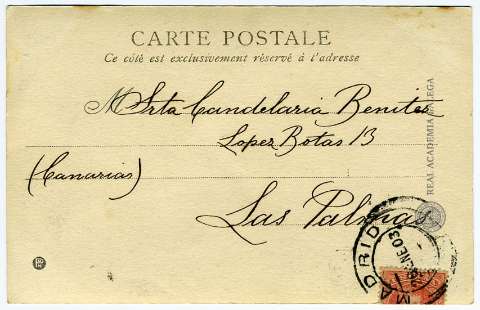 CARTE POSTALE
Ce côté est exclusivement réservé à l'adresse
M Srta Candelaria Benites
Lopez Botas 13
(Canarias)
Las Palmas
REAL ACADEMIA GALEGA
MADRID
ENE 03